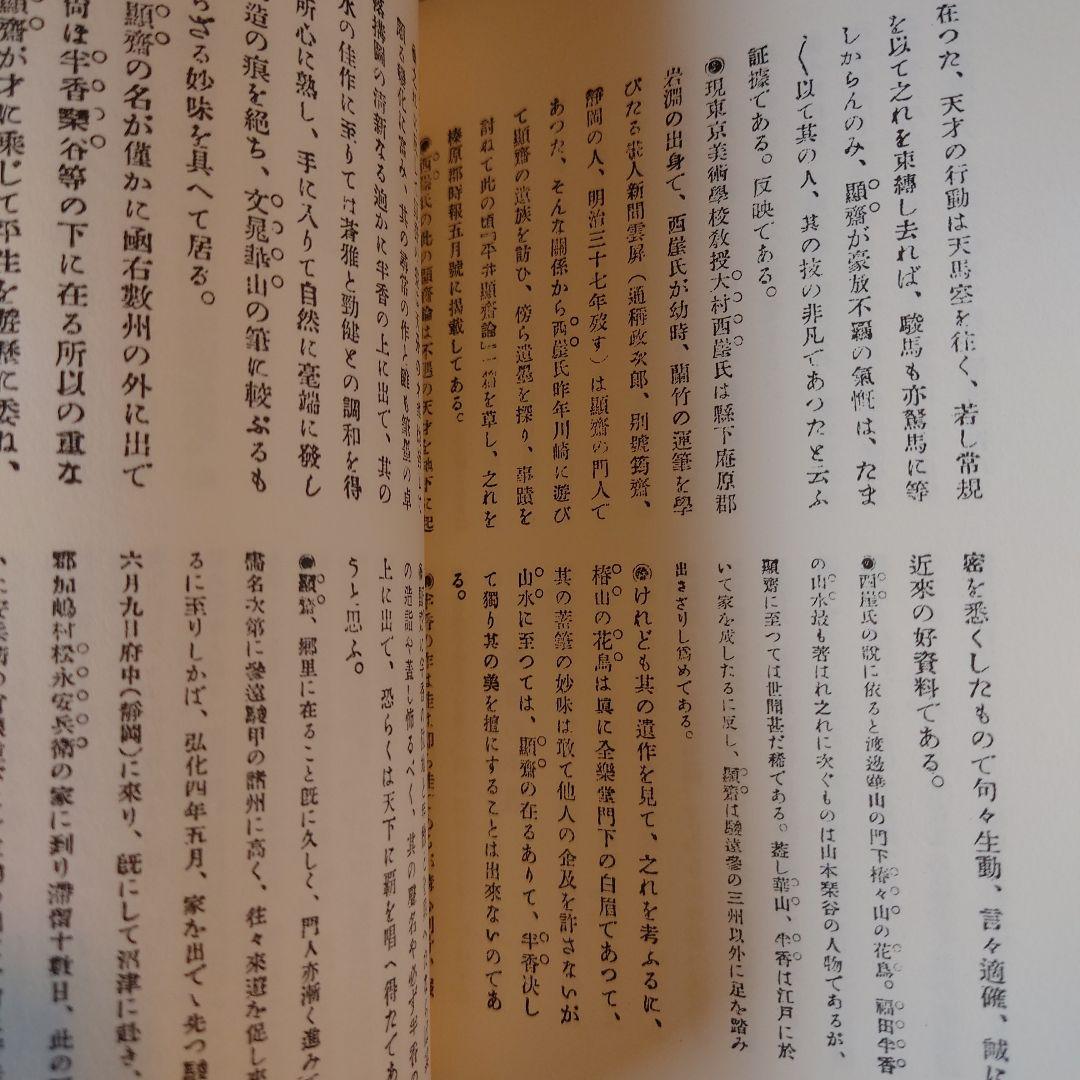 在つた、天才の行動は天馬空を往く、若し常規
を以て之れを束縛し去れば、駿馬も亦駑馬に等
しからんのみ、顯齋が豪放不羈の氣慨は、たま
〱以て其の人、其の技の非凡であつたと云ふ
証據である。反映である。
●現東京美術學校敎授大村西崖氏は縣下庵原郡
岩淵の出身で、西崖氏が幼時、蘭竹の運筆を學
びたる畫人新間雲屏(通稱政次郎、別號筠齋、
靜岡の人、明治三十七年歿す)は顯齋の門人で
あつた、そんな關係から西崖氏昨年川崎に遊び
て顯齋の遺族を訪ひ、傍ら遺墨を探り、事蹟を
討ねて此の頃『平井顯齋論』一篇を草し、之れを
榛原郡時報五月號に掲載してある。
●西崖氏の此の顯齋論は不遇の天才を地下に起
密を悉くしたもので句々生動、言々適確、誠に
近來の好資料である。
●西崖氏の說に依ると渡邊崋山の門下椿々山の花鳥。福田半香
の山水最も著はれ之れに次ぐものは山本琹谷の人物であるが、
顯齋に至つては世間甚だ稀である。蓋し崋山、半香は江戸に於
いて家を成したるに反し、顯齋は駿遠參の三州以外に足を踏み
出さざりし爲めである。
●けれども其の遺作を見て、之れを考ふるに、
椿山の花鳥は眞に全樂堂門下の白眉であつて、
其の著筆の妙味は敢て他人の企及を許さないが
山水に至つては、顯齋の在るありて、半香決し
て獨り其の美を擅にすることは出來ないのであ
る。
落構圖の淸新なる過かに半香の上に出て、其の
水の佳作に至りては蒼雅と勁健との調和を得
所心に熟し、手に入りて自然に毫端に發し
造の痕を絶ち、文晁崋山の筆に較ぶるも
らざる妙味を具へて居る。
顯齋の名が僅かに函右數州の外に出で
尚ほ半香琹谷等の下に在る所以の重な
顯齋が才に乘じて平生を遊歷に委ね、
の造詣や蓋し怖るべく、其の聲名や必ず半香の
上に出で、恐らくは天下に覇を唱へ得たであ
うと思ふ。
●顯齋、鄕里に在ること旣に久しく、門人亦漸く進みて
畵名次第に參遠駿甲の諸州に高く、往々來遊を促し來
るに至りしかば、弘化四年五月、家を出で、先つ駿
六月九日府中(靜岡)に來り、旣にして沼津に赴き、
郡加嶋村松永安兵衛の家に到り滯留十數日、此の